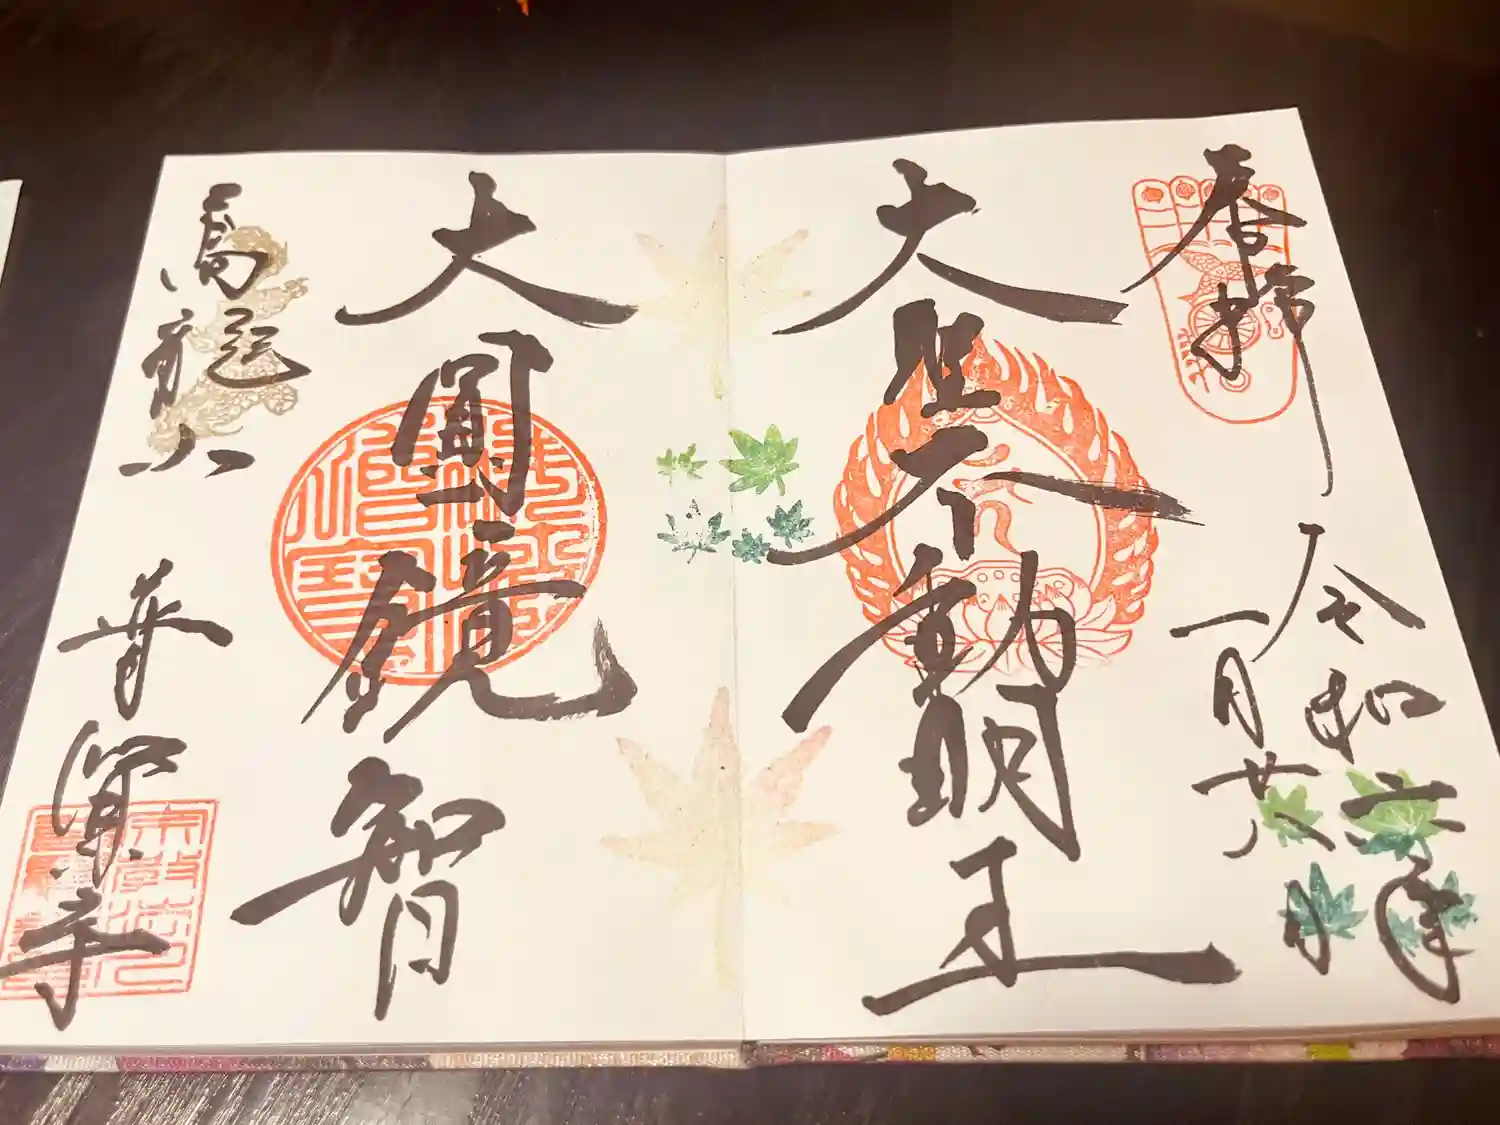 奉拝
令和六年
一月廿八日
大聖不動明王
大圓鏡智
龍山
普濟寺